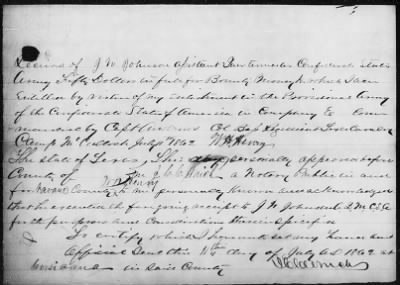 Received of J W Johnson assistant Quartermaster Confederate States
Army Fifty Dollars in full for Bounty Money to which I am
Entitled by virtue of my enlistment in the Provisional Army
of the Confederate States of America in Company E Com
manded by Capt Col Regiment
Camp McCulloch July 1862 W H Henry
The State of Texas, This day personally appeared before
County of me J C C a Notary Public in and
for Navarro County W H Henry personally known and acknowledged
that he executed the foregoing receipt to J W Johnson A Q M C S A
for the purposes and Consideration therein specified
To certify which I hereunto set my hand and
Official Seal this day of July A D 1862 at
in said County